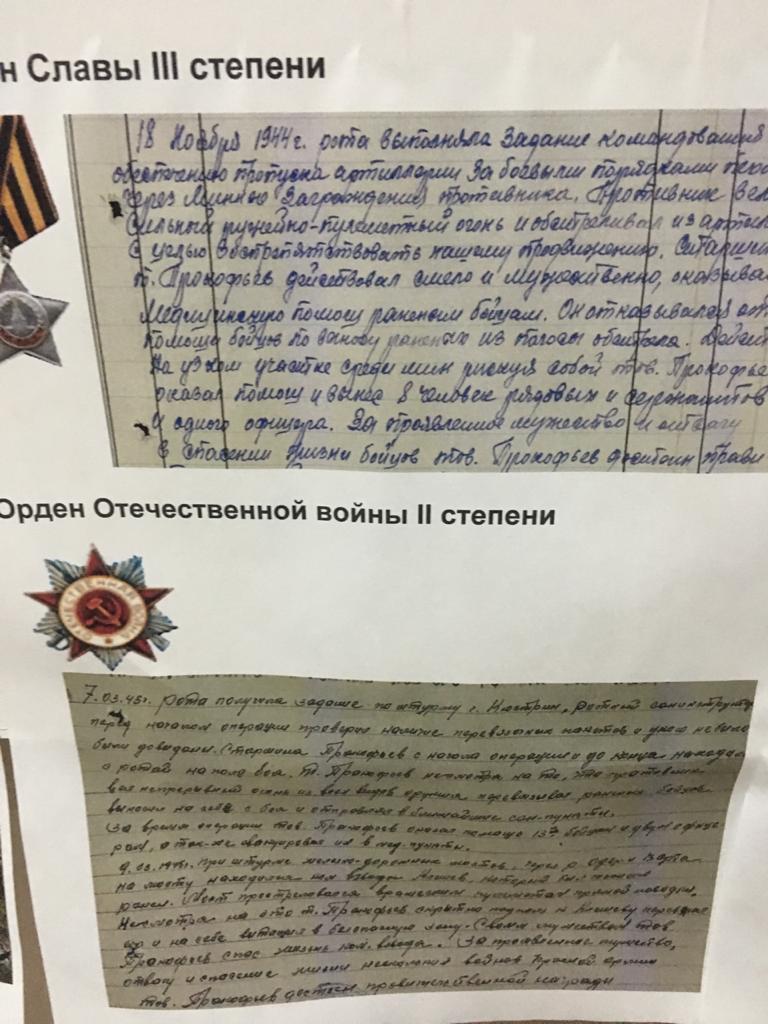 н Славы III степени
18 Ноября 1944г. рота выполняла задание командования
обеспечению пропуска артиллерии за боевыми порядками
через Минное Заграждения противника. Противник
сильный ружейно-пулеметный огонь и обстреливал из
с целью воспрепятствовать нашему продвижению.
т. Прокофьев действовал смело и мужественно, оказывал
Медицинскую помощь раненым бойцам. Он отказывался
помощи бойцов по раненых из обстрела.
На узком участке среди мин рискуя собой тов. Прокофье
оказал помощь и вынес 8 человек рядовых и сержантов
и одного офицера. За проявленное мужество и отвагу
в спасении жизни бойцов тов. Прокофьев достоин прави
Орден Отечественной войны II степени
ОТЕЧЕСТВЕННАЯ ВОЙНА
7.03.45г. рота получила задание по штурму г. Кюстрин,
перед началом операции проверил наличие перевязочных пакетов и
были до выдачи. Старшина Прокофьев с начала операции и до конца находил
с ротой на поле боя. Т. Прокофьев несмотря на то, что противник
вел непрерывный огонь из всех видов оружия перевязывал раненых бойцов
выносил на себе с боя и отправлял в ближайшие сан-пункты.
За время операции тов. Прокофьев оказал помощь бойцам и двум офице
рам, а так-же эвакуировал их в мед-пункты.
9.03.1945г. при штурме железно-дорожных мостов, через р. Одер и Варта
на мосту находился ком. взвода
ранен. Мост простреливался вражеским прямой наводки.
Несмотря на это т. Прокофьев скрытно к
его и на себе вытащил в безопасную зону. Своим мужеством тов
Прокофьев спас жизнь ком. взвода. За проявленное мужество,
отвагу и спасение жизни воинов Красной армии
тов. Прокофьев достоин правительственной награды